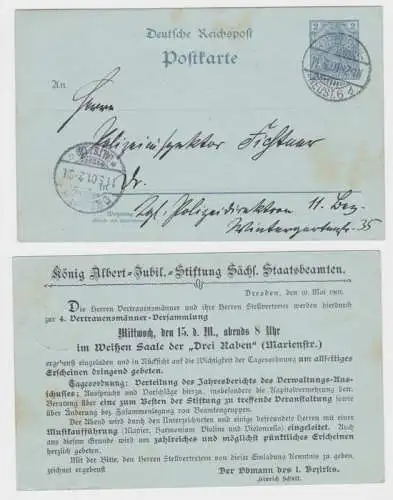 Deutsche Reichspost
Postkarte
2
An
Herrn
Polizeiinspektor Fichtner
Dr.
Kgl. Polizeidirektion 11. Bez.
Wintergartenstr. 35
König Albert-Jubil.-Stiftung Sächs. Staatsbeamten.
Dresden, den 10. Mai 1901.
Die Herren Vertrauensmänner und ihre Herren Stellvertreter werden hierdurch
zur 4. Vertrauensmänner-Versammlung
Mittwoch, den 15. d. M., abends 8 Uhr
im Weißen Saale der „Drei Raben" (Marienstr.)
ergebenst eingeladen und in Rücksicht auf die Wichtigkeit der Tagesordnung um allseitiges
Erscheinen dringend gebeten.
Tagesordnung: Verteilung des Jahresberichts des Verwaltungs-Aus-
schusses; Aussprache und Vorschläge hierzu, insbesondere die Kapitalvermehrung betr.
Beratung über eine zum Besten der Stiftung zu treffende Veranstaltung sowie
über Änderung bez. Zusammenlegung von Beamtengruppen.
Der Abend wird durch den Unterzeichneten und einige befreundete Herren mit einer
Musikaufführung (Klavier, Harmonium Violine und Violoncello) eingeleitet. Auch
aus diesem Grunde wird um zahlreiches und möglichst pünktliches Erscheinen
herzlich gebeten.
Mit der Bitte, den Herren Stellvertretern von dieser Einladung Kenntnis zu geben,
zeichnet ergebenst
Der Obmann des 1. Bezirks.